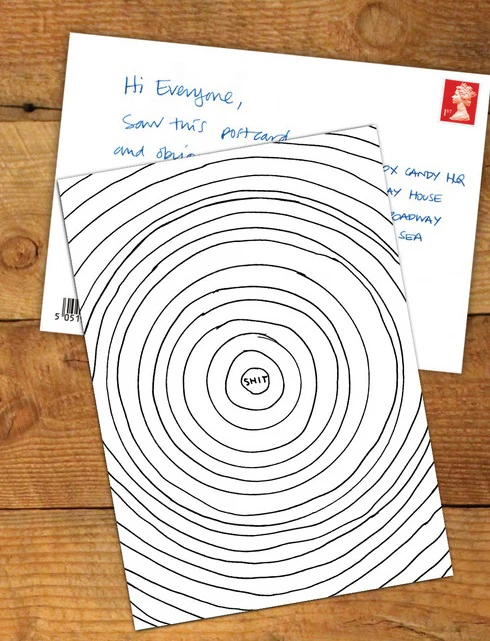 Hi Everyone,
Saw this postcard
and obvio
1ST
OX CANDY HQ
AY HOUSE
OADWAY
SEA
5 051
SHIT